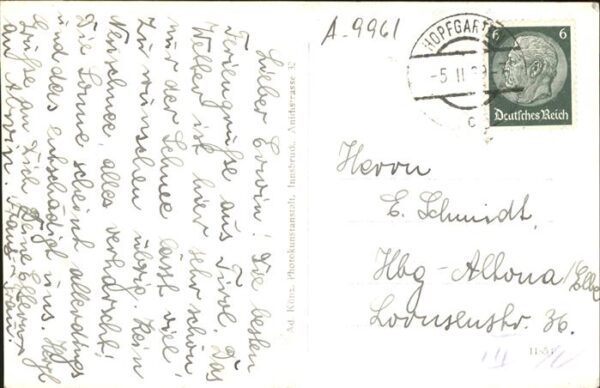 A-9961
HOPFGARTEN
-5 II 39
c
6 6
Deutsches Reich
Lieber Erwin! Die besten
Feriengrüße aus Tirol. Das
Wetter ist hier sehr schön,
nur der Schnee lässt viel
zu wünschen übrig. Kein
Neuschnee, alles verharscht!
Die Sonne scheint allerdings
und das entschädigt uns. Herzl.
Grüße an Dich & Deine Eltern
auch Erwin.
Ad. Künz, Photokunstanstalt, Innsbruck, Anichstrasse 32
Herrn
E. Schmidt,
Hbg-Altona/Elbe
Lornsenstr. 36.